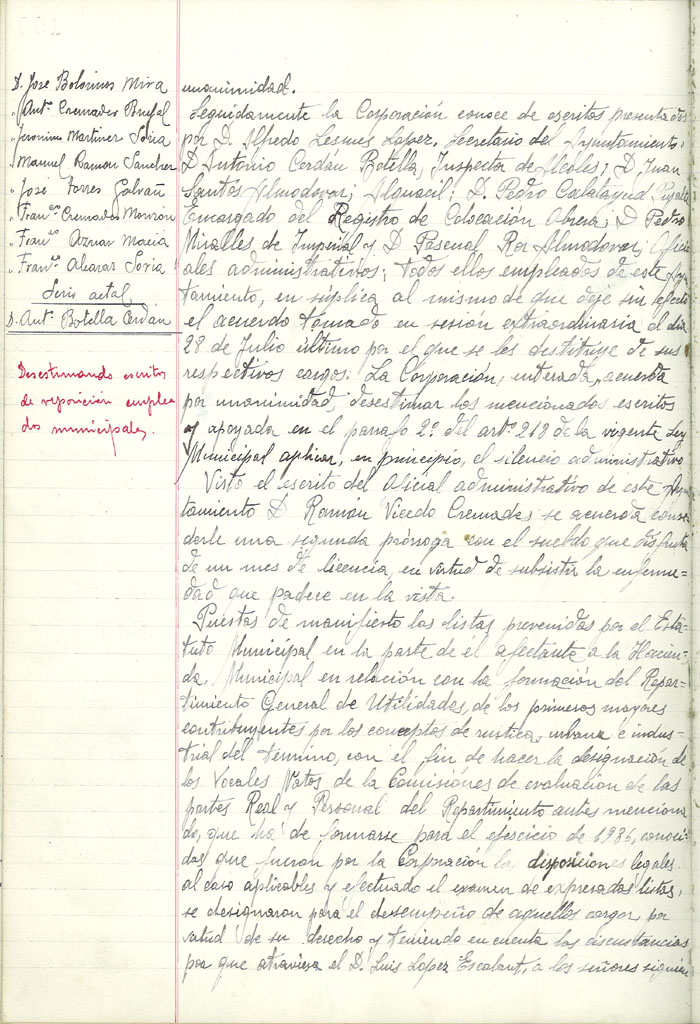 D. Jose Bolsinos Mira
" Antº Cremades Penfal
" Jeronimo Martinez Soria
" Manuel Ramon Sanchez
" Jose Torres Galvañ
" Franco Cremades Monzón
" Franco Aznar Maciá
" Franco Alcaraz Soria
Srio actal
D. Antº Botella Cerdán
Desestimando escritos
de reposición emplea
dos municipales.
unanimidad.
Seguidamente la Corporación conoce de escritos presentados
por D. Alfredo Lesmes Lopez, Secretario del Ayuntamiento;
D Antonio Cerdán Botella, Inspector de ; D. Juan
Santos Almodovar; Alguacil; D. Pedro Calatayud
Encargado del Registro de Colocación Obrera; D Pedro
Miralles de Imperial y D Pascual Ros Almodovar; Ofici
ales administrativos; todos ellos empleados de este Ayn
tamiento, en súplica al mismo de que deje sin efecto
el acuerdo tomado en sesión extraordinaria el dia
28 de Julio último por el que se les destituye de sus
respectivos cargos: La Corporación, enterada, acuerda
por unanimidad, desestimar los mencionados escritos
y apoyada en el parrafo 2º del artº 218 de la vigente Ley
Municipal aplicar, en principio, el silencio administrativo
Visto el escrito del oficial administrativo de este Ayn
tamiento D Ramón Vicedo Cremades, se acuerda conce
derle una segunda prórroga con el sueldo que disfruta
de un mes de licencia, en virtud de subsistir la enferme=
dad que padece en la vista.
Puestas de manifiesto las listas prevenidas por el Esta=
tuto Municipal en la parte de él afectante a la Hacien=
da Municipal en relación con la formación del Repar=
timiento General de Utilidades, de los primeros mayores
contribuyentes por los conceptos de rustica, urbana e indus=
trial del término, con el fin de hacer la designación de
los Vocales Natos de la Comisiónes de evaluación de las
partes Real y Personal del Repartimiento antes menciona
do, que ha de formarse para el ejercicio de 1936, conoci=
das que fueron por la Corporación las disposiciones legales
al caso aplicables y efectuado el examen de expresadas listas,
se designaron para el desempeño de aquellos cargos, por
virtud de su derecho y teniendo en cuenta las circustancias
por que atraviesa el D. Luis Lopez Escalant, a los señores siguien